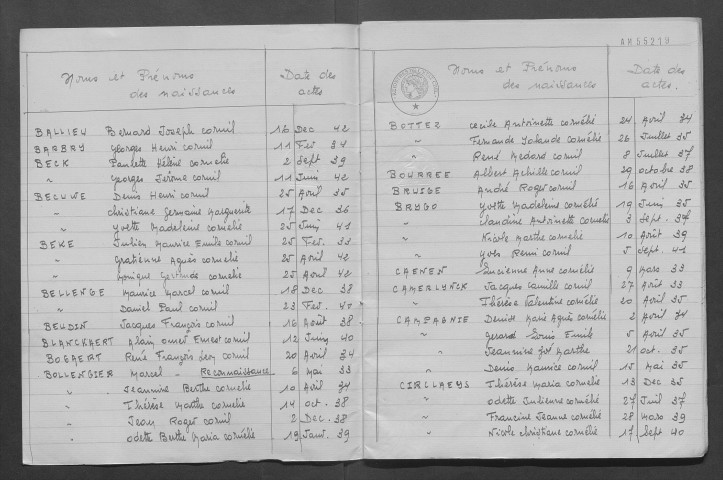 Noms et Prénoms Date des
des naissances actes
BALLIEU Bernard Joseph cornil 16 Dec 42
BARBRY Georges Henri cornil 11 Fev 34
BECK Paulette Hélène cornelie 2 Sept 39
" Georges Jérôme cornil 11 Juin 42
BECUWE Denis Henri cornil 25 Avril 35
" christiane Germaine Marguerite 17 Dec 36
" Yvette Madeleine cornélie 25 Juin 41
BEKE Julien Maurice Emile cornil 25 Fev. 33
" Gratienne Agnès cornélie 25 Avril 42
" Monique Gertrude cornelie 25 Avril 42
BELLENGE Maurice Marcel cornil 18 Dec 38
" Daniel Paul cornil 23 Fev. 40
BEUDIN Jacques François cornil 16 Août 38
BLANCKAERT Alain omer Ernest cornil 12 Juin 40
BOGAERT René François Leon cornil 20 Avril 34
BOLLENGIER Marcel - Reconnaissance 6 Mai 33
" Jeannine Berthe cornelie 10 Avril 34
" Thérèse Marthe cornelie 14 oct. 38
" Jean Roger cornil 2 Dec. 38
" odette Berthe Maria cornélie 19 Janv. 39
AM55219
Noms et Prénoms Date des
des naissances actes.
BOTTEZ Cecile Antoinette cornélie 24 Avril 34
" Fernande Yolande cornélie 26 Juillet 35
" René Medard cornil 8 Juillet 37
BOURREE Albert Achille cornil 29 octobre 38
BRUIGE André Roger cornil 16 Avril 35
BRYGO Yvette Madeleine cornélie 19 Juin 35
" Claudine Antoinette cornelie 3 Sept.
" Nicole Marthe cornelie 10 Août 39
" Yves Remi cornil 5 Sept. 41
CAENEN Lucienne Anne cornélie 9 Mars 33
CAMERLYNCK Jacques Camille cornil 27 Avril 33
" Thérèse Valentine cornélie 20 Avril 35
CAMPAGNIE Denise Marie Agnès cornélie 2 Avril 34
" Gerard Louis Emile 5 Avril 35
" Jeannine Marthe 21 oct. 35
" Denis Maurice cornil 15 Mai 35
CIRCLAEYS Thérèse Maria cornelie 13 Dec 35
" odette Julienne cornélie 27 Juil 37
" Francine Jeanne cornélie 28 Mars 39
" Nicole christiane cornélie 17 Sept 40